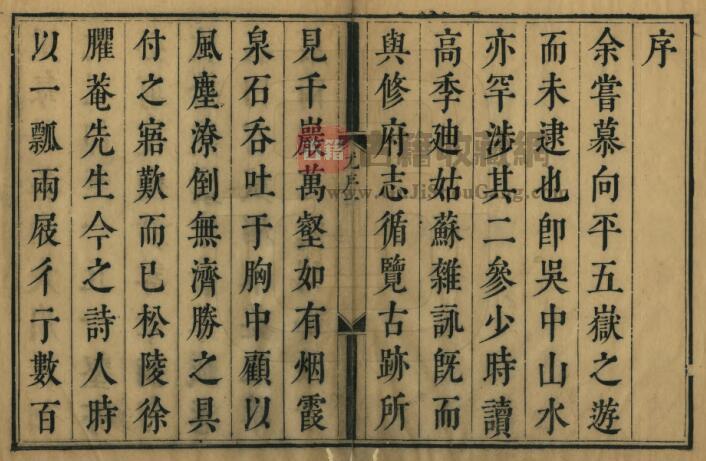 序
余嘗慕向平五嶽之遊
而未逮也卽吳中山水
亦罕涉其二參少時讀
高季廸姑蘇雜詠旣而
與修府志循覽古跡所
見千巖萬壑如有烟霞
泉石吞吐于胸中顧以
風塵潦倒無濟勝之具
付之寤歎而已松陵徐
臞菴先生今之詩人時
以一瓢兩屐彳亍數百
古籍
古籍收藏網